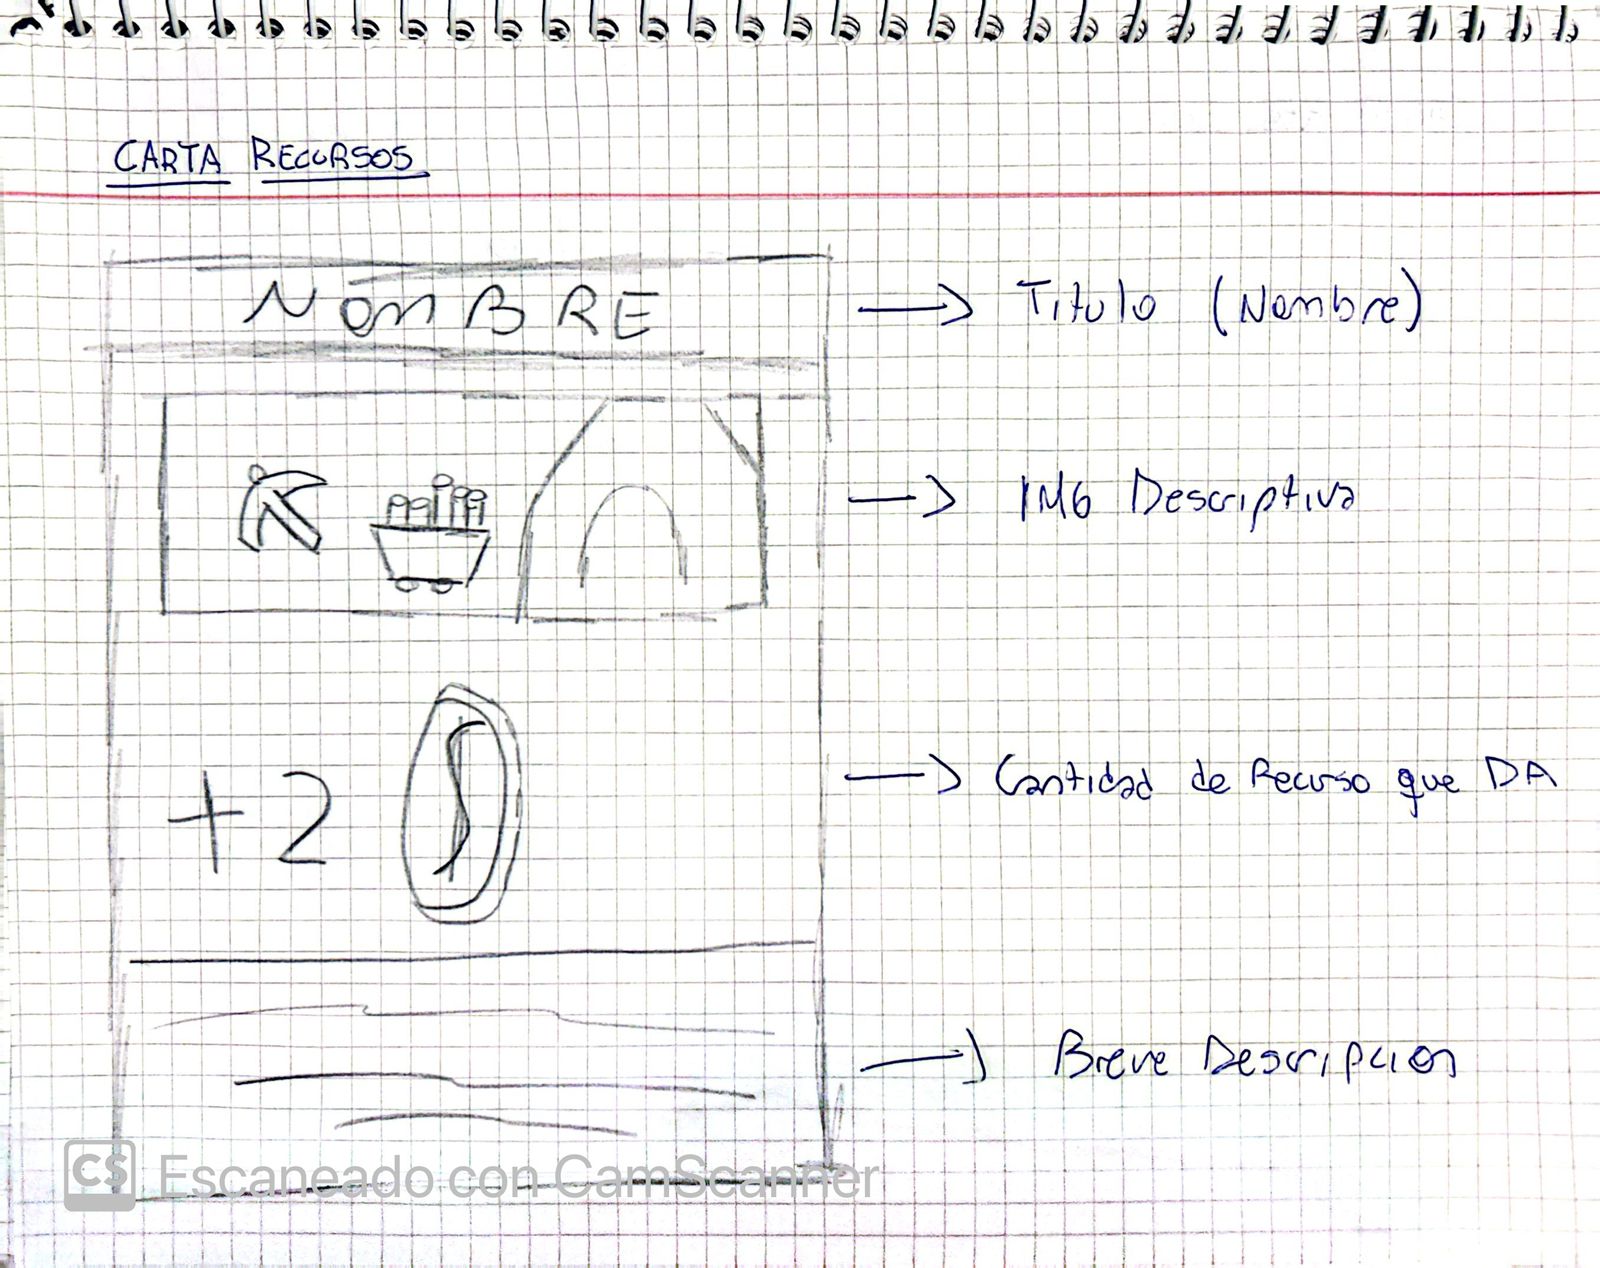 CARTA RECURSOS
NOMBRE
Titulo (Nombre)
IMG Descriptiva
+2
Cantidad de Recurso que DA
Breve Descripcion
CS Escaneado con CamScanner